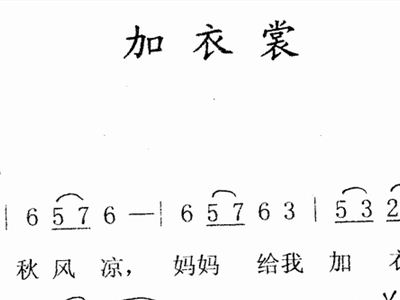 加衣裳
| 6 5 7 6 — | 6 5 7 6 3 | 5 3 2
秋风凉， 妈妈 给我 加 衣